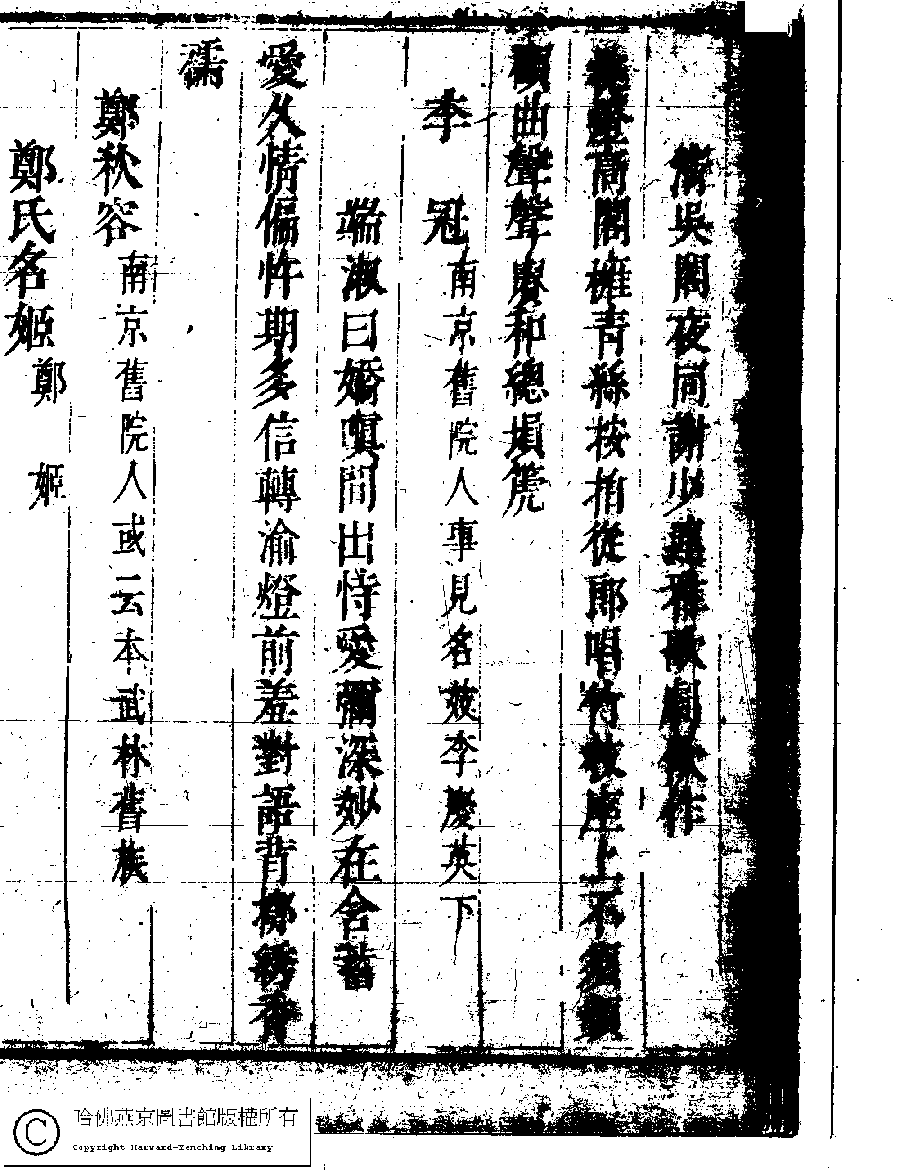 濟吳閣夜同謝少連雅歌劇係作
高閣擁青縣按拍從郎唱竹枝座上不須頻
顧曲聲聲春和總塤篪
李冠南京舊院人事見名妓李慶英下
端淑曰嬌嗔間出恃愛彌深妙在含蓄
愛久情偏忤期多信轉渝燈前羞對語背擲綉香
襦
鄭秋容南京舊院人或云本武林舊族
鄭氏名姬鄭姬
哈佛燕京圖書館版權所有
Copyright Harvard-Yenching Library